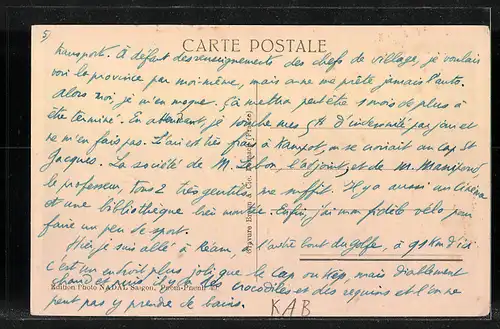 5)
CARTE POSTALE
transports. À défaut des renseignements des chefs de village, je voulais
voir la province par moi-même, mais on ne me prête jamais l'auto.
Alors moi je m'en moque. Çà mettra peut être 1 mois de plus à
être terminé. En attendant, je touche mes 5 $ d'indemnité par jour et
ne m'en fais pas. L'air est très frais à Kampot, on se croirait au Cap St
Jacques. La société de M. Lebon, l'adjoint, et de M.
le professeur, tous 2 très gentils me suffit. Il y a aussi un cinéma
et une bibliothèque bien montée. Enfin, j'ai mon fidèle vélo pour
faire un peu de sport.
Hier, je suis allé à Ream, à l'autre bout du golfe, à 99 Km d'ici
c'est un endroit plus joli que le Cap ou Kep, mais diablement
chaud et puis il y a des crocodiles et des requins et l'on ne
peut pas y prendre de bains.
Édition Photo NADAL Saigon, Pnom-Penh
KAB